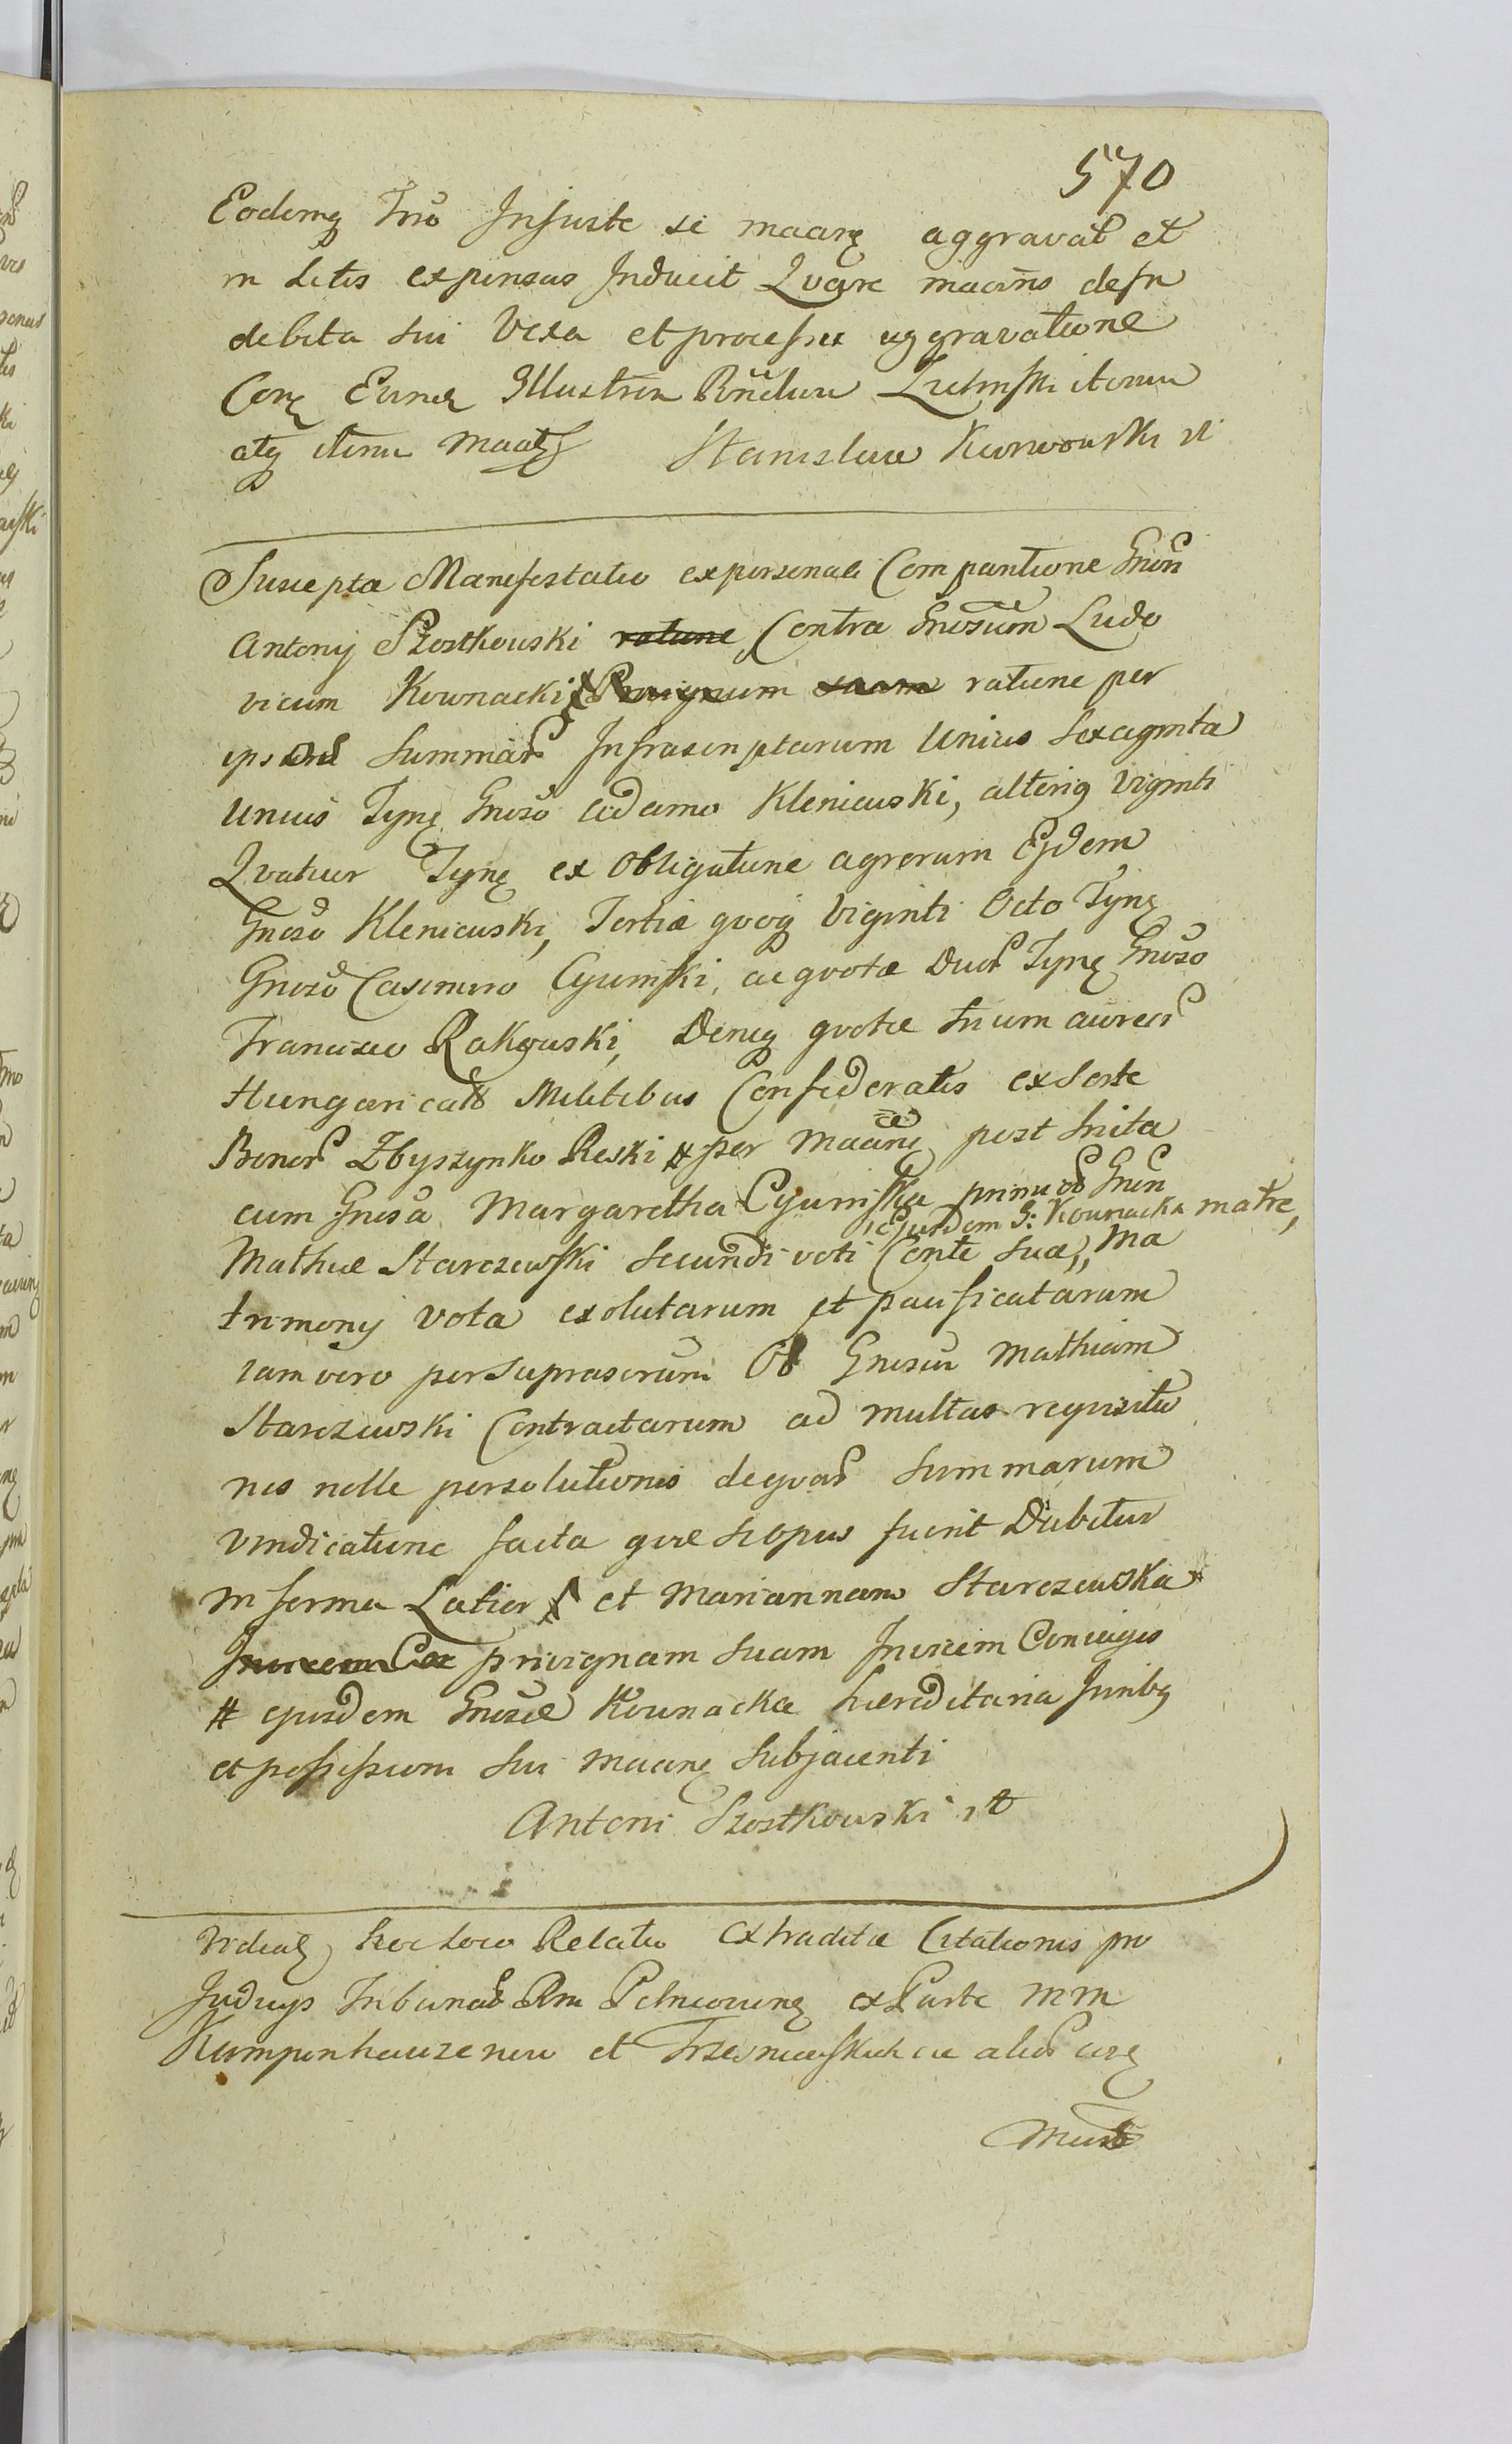 570
Eodemq Tnio Injuste se maarę aggravat et
in Litis expensas Inducit Qvare maarins de In
debita sui Vexa et processu aggravatione
Corę Eund Illustrem Bundum Zielinski iterum
atq iterum maatę Stanislaw Kurwowski
Suscepta Manifestatio ex personali Compantione Gnosi
Antonij Szostkowski ratione Contra Gnosum Ludo
vicum Kownacki Privignum suum ratione per
ipsum Summar Infrascriptarum Unius Sexaginta
unius Tynę Gnoso Adamo Kleniewski, alteriq Viginti
Qvatuor Tynę ex Obligatione agrorum Ejdem
Gnoso Kleniewski, Tertiæ qvoq Viginti Octo Tynę
Gnoso Casimiro Cyunski, ac qvotæ Duor Tynę Gnoso
Francisco Rakowski, Deniq qvotæ trium aureor
Hungaricalt Militibus Confederatis ex Sorte
Bonor Zbyszynko Reski # per Maarę post Inita
cum Gnosa Margaretha Cyuniska primo ob Gnsi
ejusdem G: Kownacka matre,
Mathiæ Starczewski secundi voti Conte sua, Ma
trimonij Vota exolutarum et pacificatarum
iam vero per suprascrum Ob Gnosum Mathiam
Starczewski Contractarum ad multas reqvisitio
nes nolle persolutionis de qvar Summarum
vindicatione facta qvæ si opus fuerit Dabitur
in forma Latior # et Mariannam Starczewska
Invicem Con privignam suam Invicem Coniuges
# ejusdem Gnosæ Kownacka hæreditaria Juribq
et possessioni sui maarę Subjacenti
Antoni Szostkowski
hoc loco Relatio Extraditæ Citationis pro
Judicijs Tribunalt Rni ex Parte MM
Kampenhauzenow et Trzesniewskich ac alior